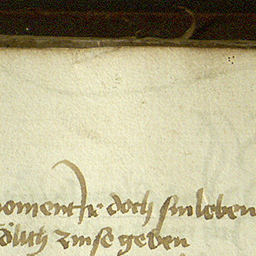 moment Ir doch sin leben
dlich zinse geben